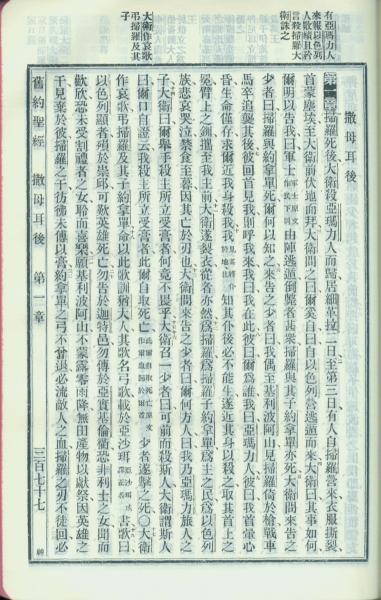 有亞瑪力人
來報以色列
人敗績且矜
言殺掃羅大
衛誅之
大衛作哀歌
弔掃羅及其
子
撒母耳後
掃羅死後大衛殺亞瑪力人而歸居細革拉二日至第三日有人自掃羅營來衣服撕裂
首蒙塵埃至大衛前伏地而拜大衛問之曰爾奚自曰自以色列營逃遁而來大衛曰其事如何
爾明以告我曰軍士軍士原文作民下同由陣逃遁倒斃者甚衆掃羅與其子約拿單亦死大衛問來告之
少者曰掃羅約拿單死爾何以知之來告之少者曰我偶至基利波阿山見掃羅倚於槍戰車
馬卒追襲其後彼回首見我則呼我來我曰我在此彼曰爾爲誰我曰亞瑪力人彼曰我首暈心
皆生命僅存求爾近我身殺我我知其仆後必不能生遂近其身以殺之取其首上之
冕臂上之釧攜至我主前大衛遂裂衣從者亦然爲掃羅掃羅子約拿單爲主之民爲以色列
族悲哀哭泣禁食至暮因其亡於刃也大衛問來告之少者曰爾何方人曰我乃亞瑪力旅人之
子大衛曰爾舉手殺主所立受膏者何竟不畏乎大衛召一少者曰可前而殺斯人大衛謂斯人
曰爾口自證云我殺主所立受膏者此爾自取死亡此爾自取死亡原文作爾血歸於爾首少者遂擊之死〇大衛
作哀歌弔掃羅及其子約拿單命以此歌訓猶大人其歌名弓歌載於亞沙珥亞沙珥或譯正直者書歌曰
以色列顯者殞於崇邱可歎英雄死亡勿告於迦特邑勿傳於亞實基倫衢恐非利士之女聞而
歡欣恐未受割禮者之女聆而喜樂願基利波阿山不蒙露零雨降無田產物以獻祭因英雄之
干見棄於彼掃羅之干彷彿未傅以膏約拿單之弓不曾退必流敵人之血掃羅之刃不徒回必
舊約聖經 撒母耳後 第一章 三百七十七